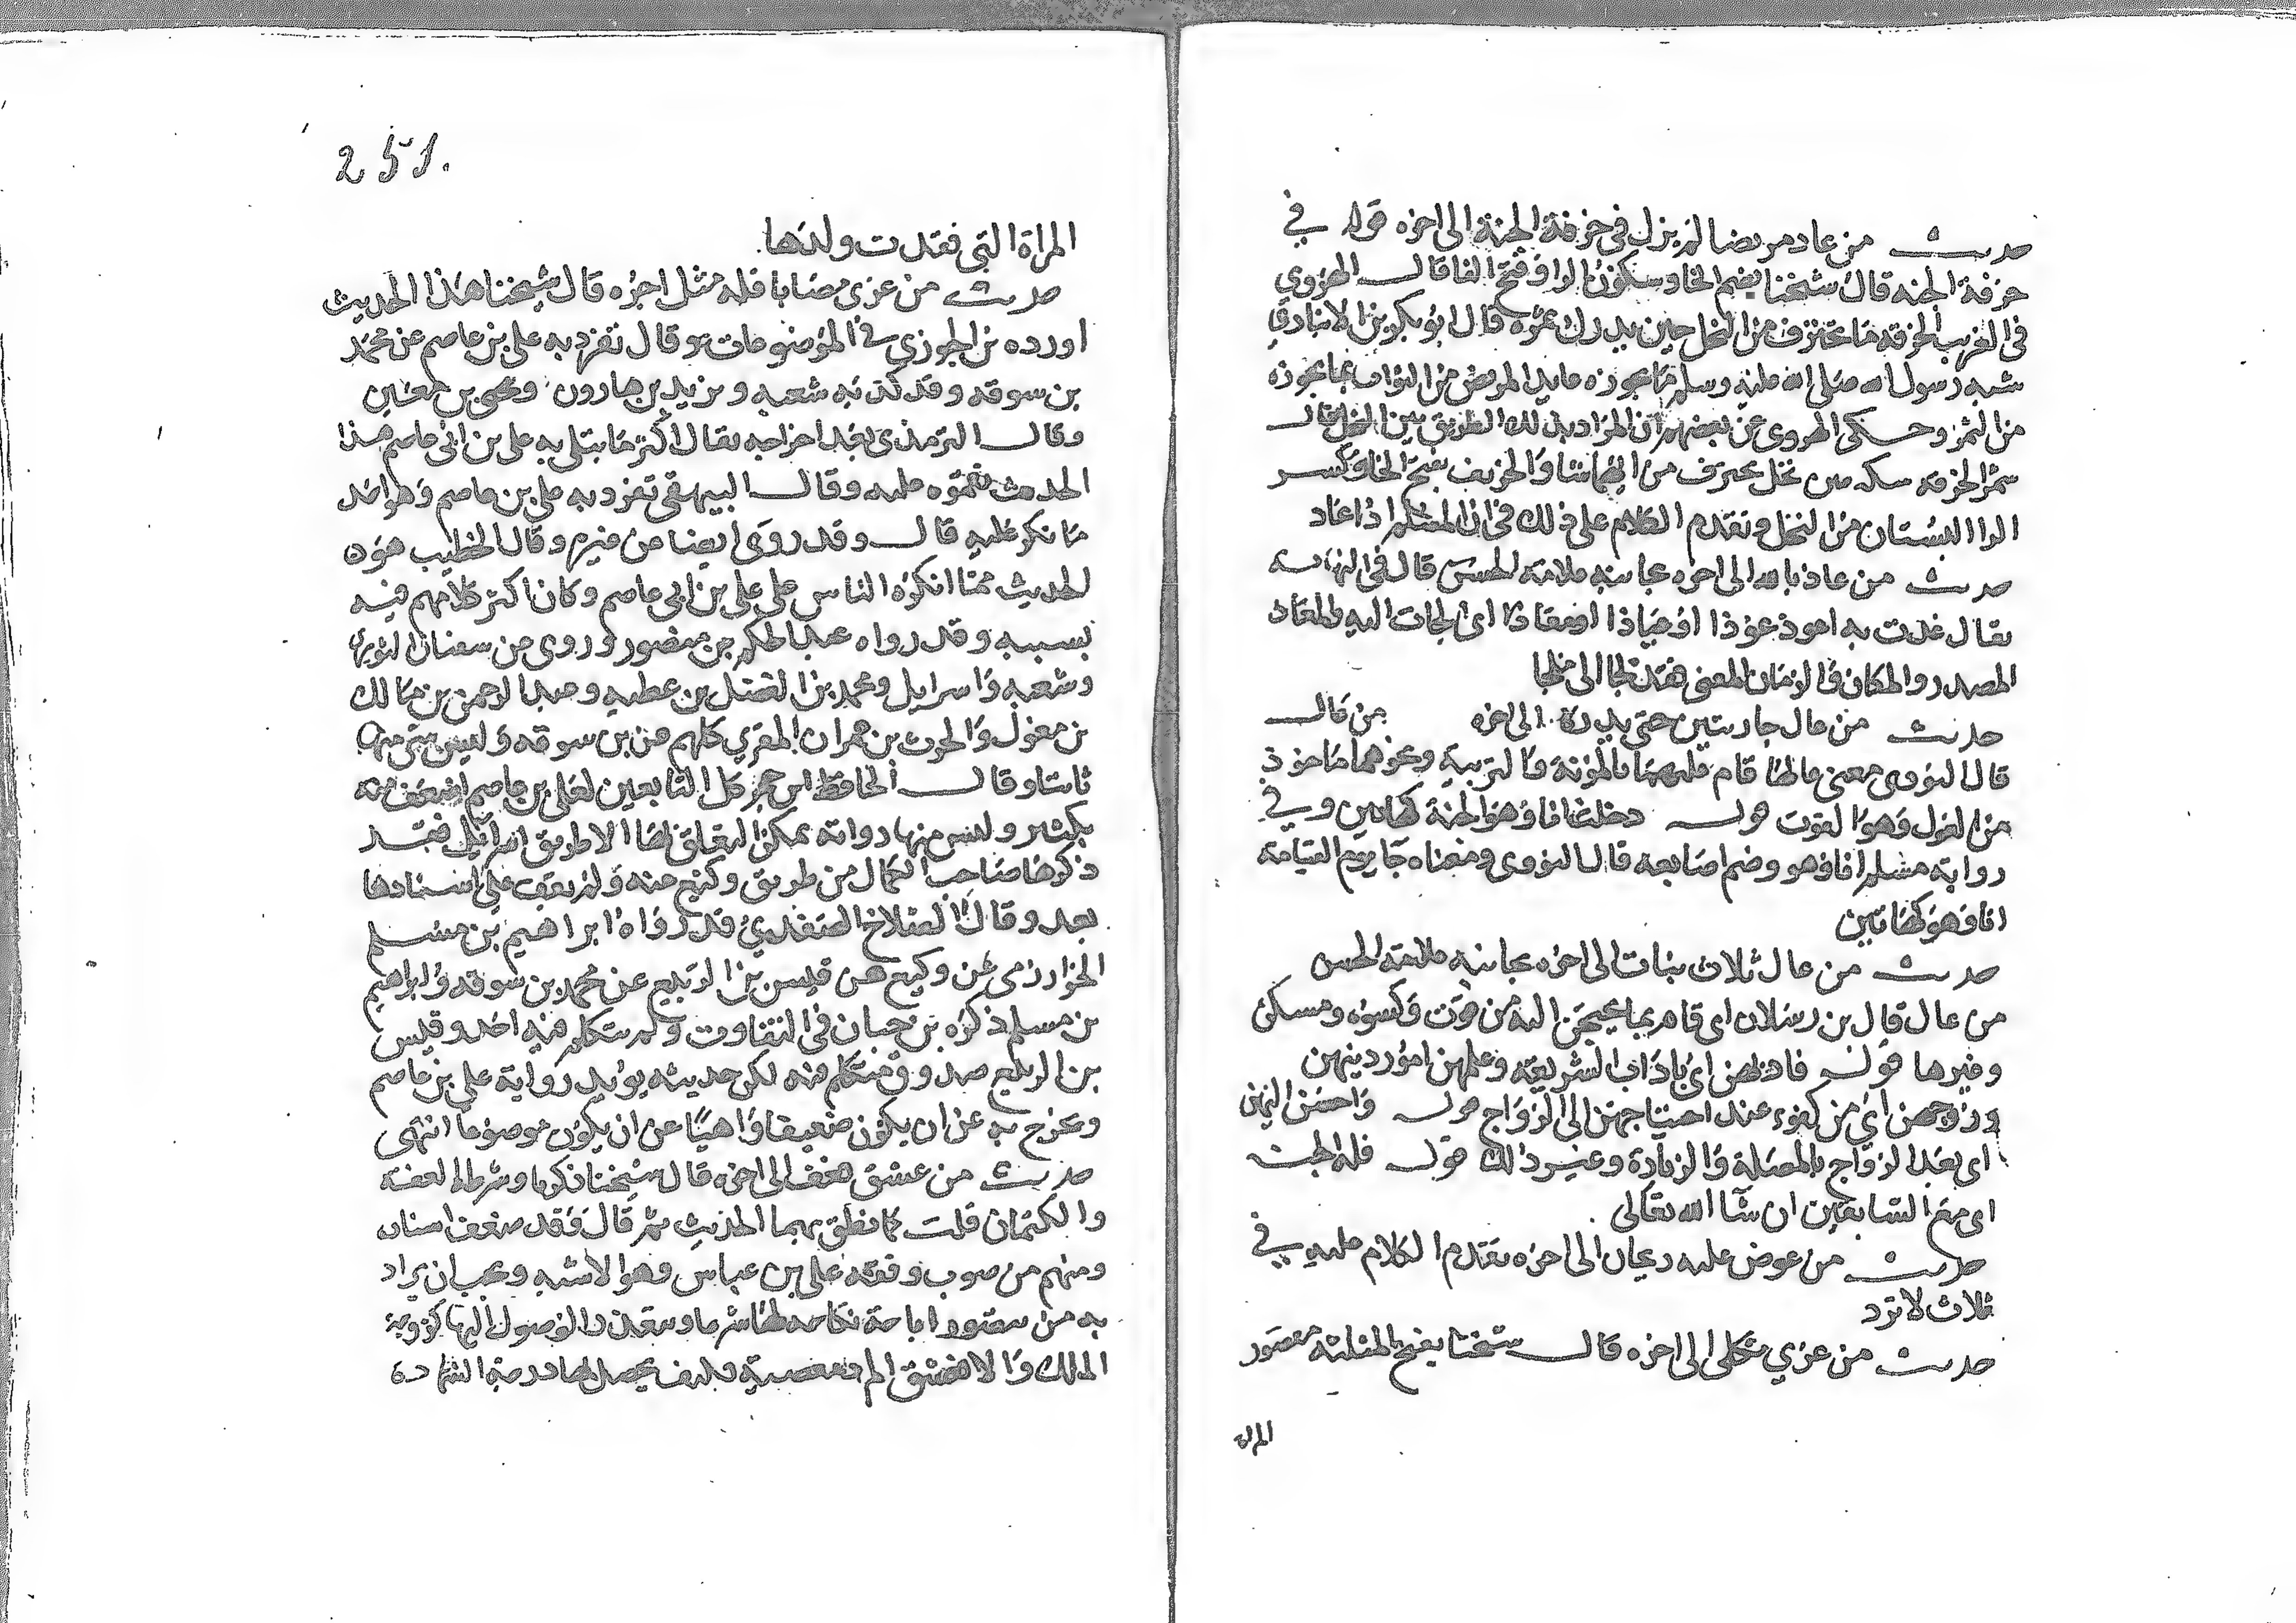 حديث من عاد مريضا لم يزل في خرفة الجنة الى اخره قوله في
خرفة الجنه قال شيخنا بضم الخا وسكون الرا وفتح الفا قال الهروي
في الغريب الخرفه ما يخترف من النخل حين يدرك ثمره قال ابو بكر بن الانباري
شبه رسول الله صلى الله عليه وسلم ما يحوزه عايد المريض من الثواب بما يحوزه
من الثمر وحكى الهروي عن بعضهم ان المراد بذلك الطريق بين النخل قال
شمر الخرفه سكه بين نخل يخترف من ايهما شا والخريف بفتح الخا وكسر
الرا البستان من النخل وتقدم الكلام على ذلك في ان المسلم اذا عاد
حديث من عاذ بالله الى اخره بجانبه علامة الحسن قال في النهايه
يقال عذت به اعوذ عوذا او عياذا او معاذا اى لجات اليه والمعاذ
المصدر والمكان والزمان المعنى فقد لجا الى ملجا
حديث من عال جاريتين حتى يدركا الى اخره من قال
قال النووى معنى عالهما قام عليهما بالمؤنة والتربية ونحوهما ماخوذ
من العول وهو القوت قوله دخلت انا وهو الجنة كهاتين وفي
رواية مسلم انا وهو وضم اصابعه قال النووى ومعناه جا يوم القيامة
انا وهو كهاتين
حديث من عال ثلاث بنات الى اخره بجانبه علامة الحسن
من عال قال بن رسلان اى قام بما يحتجن اليه من قوت وكسوه ومسكن
وغيرها قوله فادبهن اى باداب الشريعة وعلمهن امور دينهن
وزوجهن اى من كفوء عند احتياجهن الى الزواج قوله واحسن اليهن
اى بعد الزواج بالصلة والزيادة وغير ذلك قوله فله الجنة
اى مع السابقين ان شا الله تعالى
حديث من عرض عليه ريحان الى اخره تقدم الكلام عليه في
ثلاث لا ترد
حديث من عزي ثكلى الى اخره قال شيخنا بفتح المثلثه مقصور
المراة
251.
المراة التي فقدت ولدها
حديث من عزى مصابا فله مثل اجره قال شيخنا هذا الحديث
اورده بن الجوزي في الموضوعات وقال تفرد به علي بن عاصم عن محمد
بن سوقه وقد كذبه شعبه ويزيد بن هارون ويحى بن معين
وقال الترمذى بعد اخراجه يقال اكثر ما ابتلى به على بن ابى عاصم هذا
الحديث نقموه عليه وقال البيهقى تفرد به على بن عاصم وهو احد
ما نكر عليه قال وقد روى ايضا عن غيره وقال الخطيب هذا
الحديث مما انكره الناس على على بن ابى عاصم وكان اكثر كلامهم فيه
بسببه وقد رواه عبد الحكم بن منصور وروى عن سفيان الثورى
وشعبه واسرايل ومحمد بن الفضل بن عطيه وعبد الرحمن بن مالك
بن مغول والحرث بن عمران المغرى كلهم عن بن سوقه وليس شى منها
ثابتا وقال الحافظ ابن حجر كل التابعين لعلي بن عاصم اضعف منه
بكثير وليس منها رواية يمكن التعلق بها الا طريق اسرائيل فقد
ذكرها صاحب الكمال من طريق وكيع عنه ولم يقف على اسنادها
بعد وقال الصلاح الصفدي قد رواه ابراهيم بن مسلم
الخوارزمى عن وكيع عن قيس بن الربيع عن محمد بن سوقه وابراهيم
بن مسلم ذكره بن حبان في الثقات ولم يتكلم فيه احد وقيس
بن الربيع صدوق متكلم فيه لكن حديثه يؤيد رواية على بن عاصم
ويخرج به عن ان يكون ضعيفا واهيا عن ان يكون موضوعا انتهى
حديث من عشق فعف الى اخره قال شيخنا ذكرها وشرط العفة
والكتمان قلت كما نطق بهما الحديث ثم قال وقد ضعف اسناده
ومنهم من صوب وقفه على بن عباس وهو الاشبه ويجب ان يراد
به من يتصور اباحة نكاحه لها شرعا ويتعذر الوصول اليها كزوجة
الملك والا فعشق المرد معصية فكيف يحصل بها درجة الشهادة